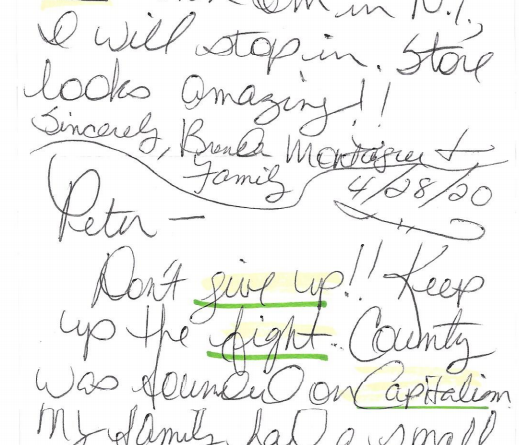 I'm in N.Y.,
I will stop in. Store
looks amazing!!
Sincerely, Brenda &
Family
4/28/20
Peter -
Don't give up!! Keep
up the fight. County
was founded on Capitalism
My family had a small